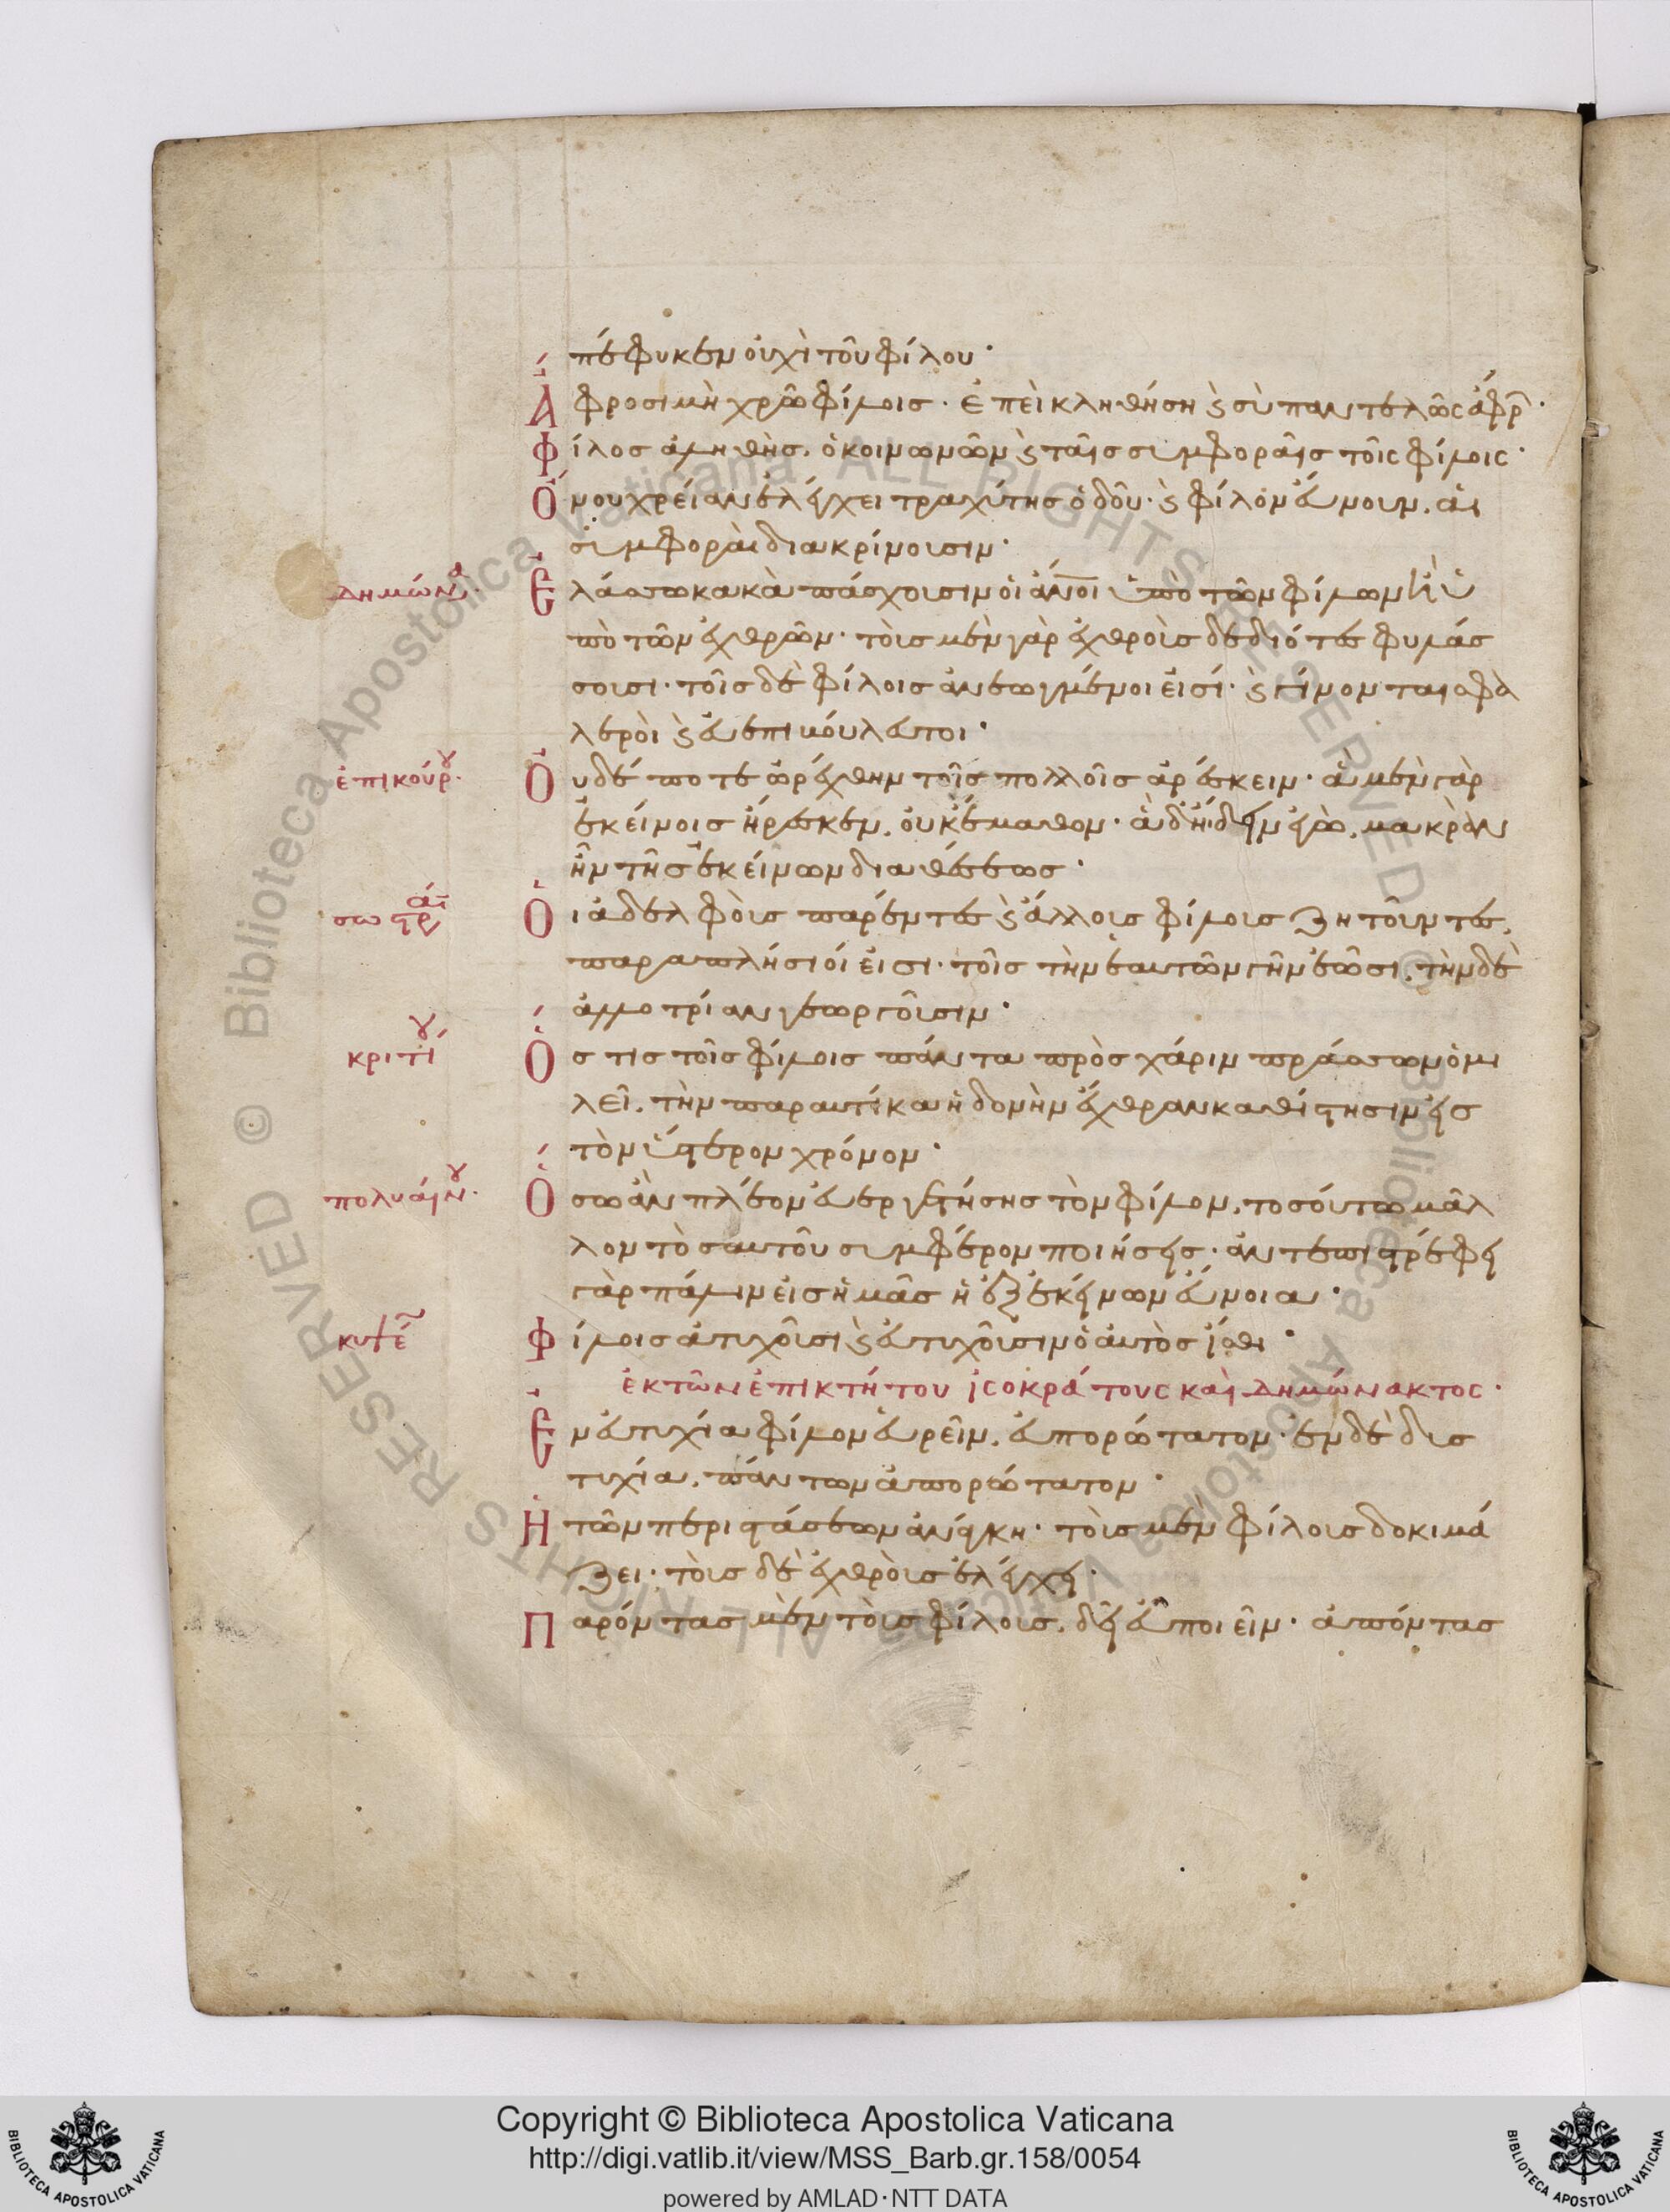 πέφυκεν οὐχὶ τοῦ φίλου·
Ἄφροσι μὴ χρῶ φίλοις· ἐπεὶ κληθήση ϗ σὺ παντελῶς ἄφρ·
Φίλος ἀληθὴς, ὁ κοινωνῶν ϗ ταῖς συμφοραῖς τοῖς φίλοις·
Ὄνου χρείαν ἐλέγχει τραχύτης ὁδοῦ· ϗ φίλον εὔνουν, αἱ
συμφοραὶ διακρίνουσιν·
δημών
Ἐλάσσω κακὰ πάσχουσιν οἱ ἄνοι ὑπὸ τῶν φίλων ἢ ὑ
πὸ τῶν ἐχθρῶν· τοὺς μὲν γὰρ ἐχθροὺς δεδιότες φυλάσ
σουσι· τοῖς δὲ φίλοις ἀνεωγμένοι εἰσί· ϗ γίνονται σφα
λεροὶ ϗ εὐεπιβούλευτοι·
ἐπικούρου·
Οὐδέποτε ὠρέχθην τοῖς πολλοῖς ἀρέσκειν· ἃ μὲν γὰρ
ἐκείνοις ἤρεσκεν, οὐκ ἔμαθον· ἃ δ' ᾔδειν ἐγὼ, μακρὰν
ἦν τῆς ἐκείνων διαθέσεως·
σωκρ
Οἱ ἀδελφοὺς παρέντες ϗ ἄλλους φίλους ζητοῦντες,
παραπλήσιοί εἰσι· τοῖς τὴν ἑαυτῶν γῆν ἐῶσι, τὴν δὲ
ἀλλοτρίαν γεωργοῦσιν·
κριτίου
Ὅστις τοῖς φίλοις πάντα πρὸς χάριν πράσσων ὁμι
λεῖ, τὴν παραυτίκα ἡδονὴν ἔχθραν καθίστησιν εἰς
τὸν ὕστερον χρόνον·
πολυαίνου·
Ὅσω ἂν πλέον εὐεργετήσης τὸν φίλον, τοσούτω μᾶλ
λον τὸ σαυτοῦ συμφέρον ποιήσεις· ἀντεπιστρέφει
γὰρ πάλιν εἰς ἡμᾶς ἡ ἐξ ἐκείνων εὔνοια·
Φίλοις εὐτυχοῦσι ϗ ἀτυχοῦσιν ὁ αὐτὸς ἴσθι·
ἐκ τῶν ἐπικτήτου ἰσοκράτους καὶ δημώνακτος·
Ἐν εὐτυχία φίλον εὑρεῖν, εὐπορώτατον· ἐν δὲ δυσ
τυχία, πάντων ἀπορώτατον·
Ἡ τῶν περιστάσεων ἀνάγκη· τοὺς μὲν φίλους δοκιμά
ζει· τοὺς δὲ ἐχθροὺς ἐλέγχει·
Παρόντας μὲν τοὺς φίλους, δεῖ εὖ ποιεῖν· ἀπόντας
Copyright © Biblioteca Apostolica Vaticana
http://digi.vatlib.it/view/MSS_Barb.gr.158/0054
powered by AMLAD·NTT DATA